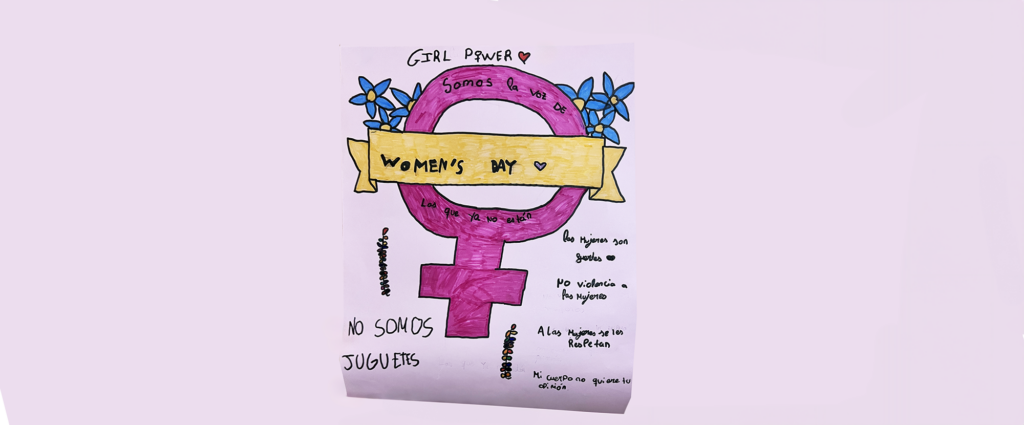 GIRL POWER
Somos la voz DE
WOMEN'S DAY
Las que ya no están
Las Mujeres son
NO violencia a
las Mujeres
NO SOMOS
JUGUETES
A Las Mujeres se les
Respetan
Mi cuerpo no quiere tu
opinión